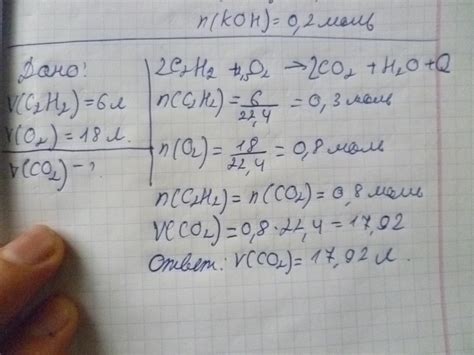 n(KOH)=0,2 моль
Дано:
V(C₂H₂)=6л
V(O₂)=18 л.
V(CO₂)-?
2C₂H₂ + O₂ → 2CO₂ + H₂O + Q
n(C₂H₂)= 6/22,4 = 0,3 моль
n(O₂)= 18/22,4 = 0,8 моль
n(C₂H₂)= n(CO₂)= 0,8 моль
V(CO₂)=0,8·22,4=17,92
Ответ: V(CO₂)=17,92 л.